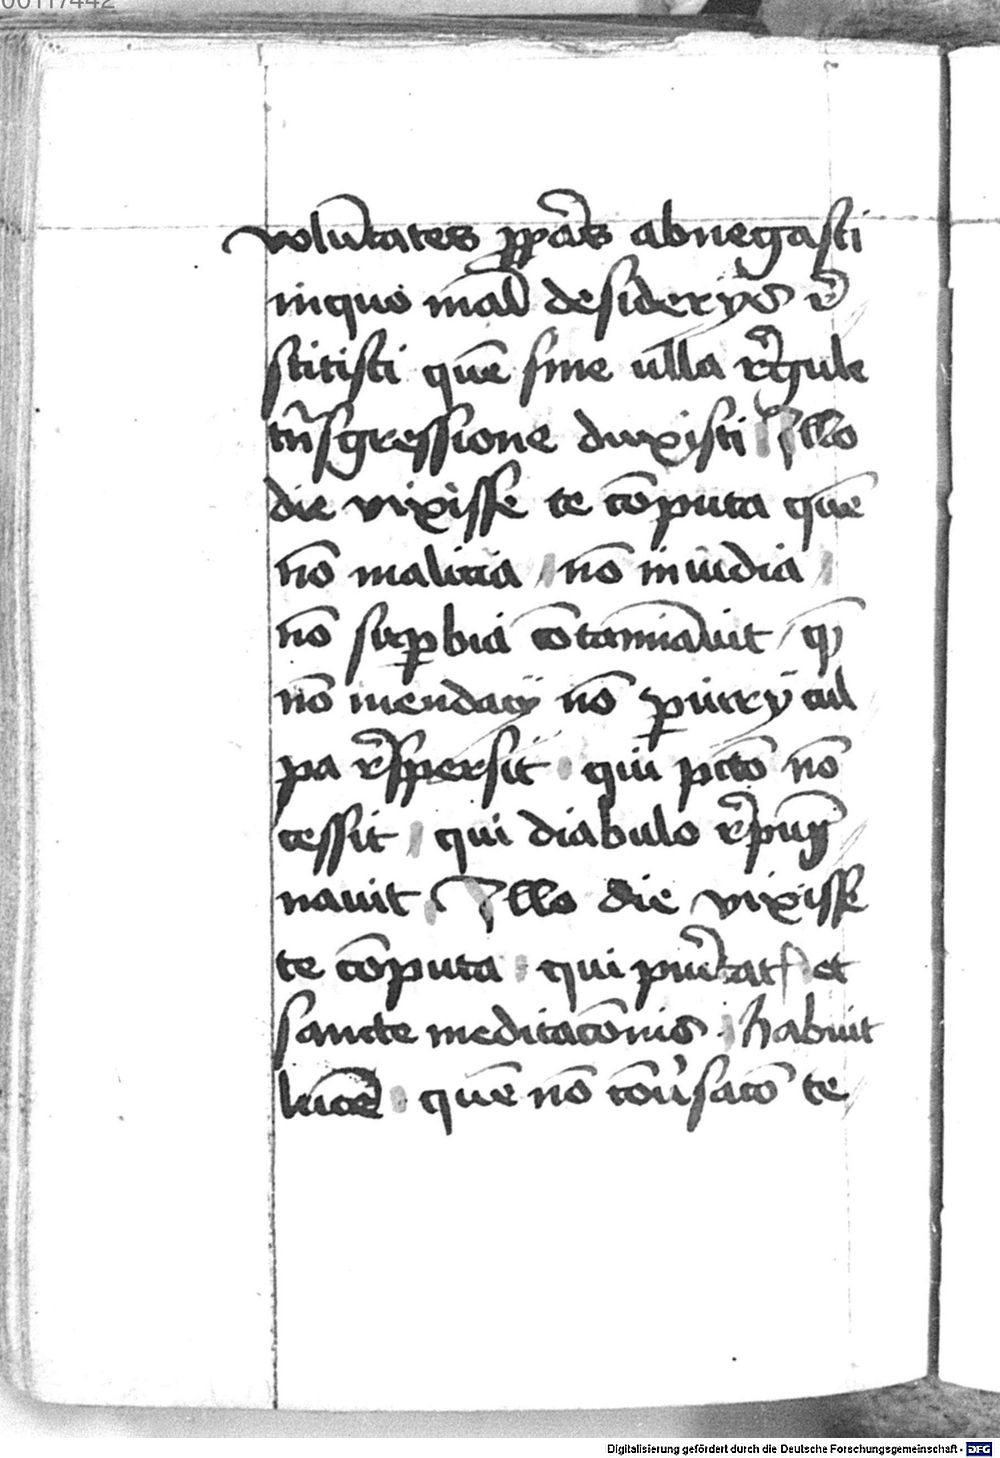 volu̅tates pp̅as abnegasti
in quo mal̅ desiderys re̅
stitisti que̅ sine ulla regule
tn̅sgressione duxisti Illo
die vixisse te co̅puta que̅
no̅ malicia no̅ inuidia
no̅ suꝑbia co̅tamīauit q̅
no̅ mendacij no̅ ꝑiurij cul
pa respersit qui pcto̅ no̅
cessit qui diabulo repug
nauit Illo die vixisse
te co̅puta qui puritat et
sancte meditaco̅nis habuit
luce̅ que̅ no̅ co̅u̓saco̅ te
Digitalisierung gefördert durch die Deutsche Forschungsgemeinschaft - DFG